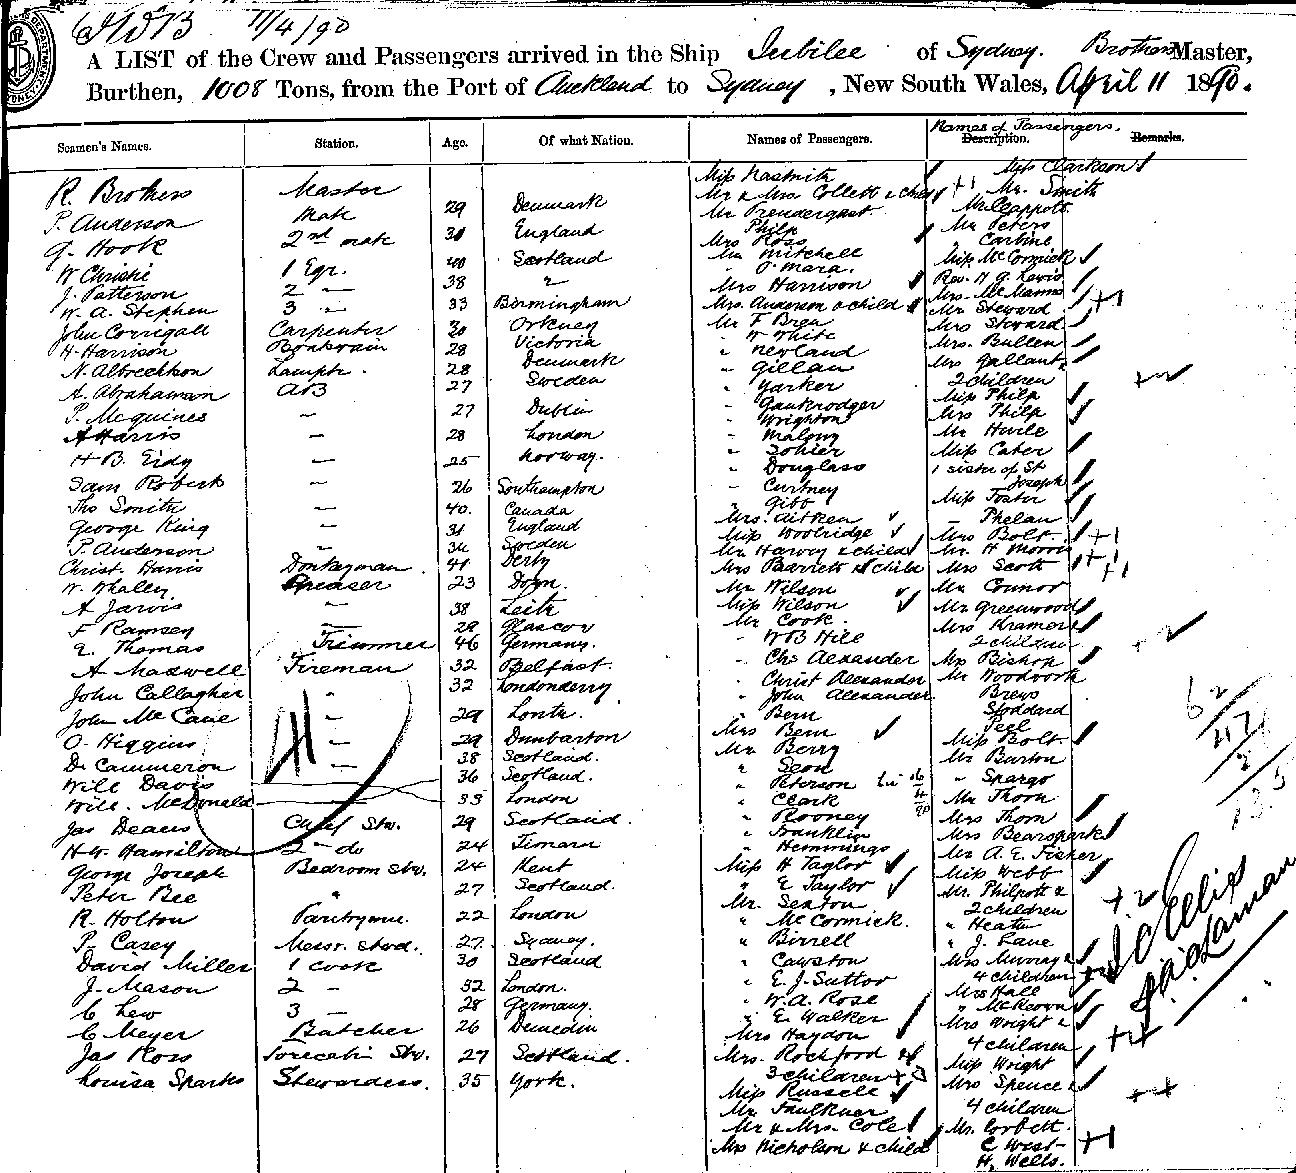 11/4/90
A LIST of the Crew and Passengers arrived in the Ship Jubilee of Sydney. Brothers Master,
Burthen, 1008 Tons, from the Port of Auckland to Sydney, New South Wales, April 11 1890.
Seamen's Names. Station. Age. Of what Nation. Names of Passengers. Names of Passengers. Description. Remarks.
R. Brothers Master
P. Anderson Mate 29 Denmark
G. Hook 2nd mate 31 England
W Christie 1 Egr. 40 Scotland
J. Patterson 2 " 38 "
W. A. Stephen 3 " 33 Birmingham
John Corrigall Carpenter 30 Orkney
H. Harrison Boatswain 28 Victoria
N. Albrechtson Lamptr. 28 Denmark
A. Abrahamson AB 27 Sweden
P. McGuines " 27 Dublin
A Harris " 28 London
H B. Eidy " 25 Norway.
Sam Robert " 26 Southampton
Thos Smith " 40. Canada
George King " 31 England
P. Anderson " 34 Sweden
Christ. Harris Donkeyman 41 Derby
W. Whaley Greaser 23 Down.
A Jarvis " 38 Leith
F Ramsey " 29 Glascow
E. Thomas Trimmer 46 Germany.
A Maxwell Fireman 32 Belfast.
John Callagher " 32 Londonderry
John McCane " 29 Louth.
O. Higgins " 29 Dunbarton
D. Cammeron " 38 Scotland.
Will Davis 36 Scotland.
Will. McDonald 33 London
Jas Deans Chief Stw. 29 Scotland.
H. W. Hamilton 2 " do 24 Timaru
George Joseph Bedroom Stw. 24 Kent
Peter Bee " 27 Scotland.
R. Holton Pantryman. 22 London
P. Casey Messr. Stwd. 27. Sydney.
David Miller 1 Cook 30 Scotland
J. Mason 2 " 32 London.
C Lew 3 " 28 Germany.
C Meyer Butcher 26 Dunedin
Jas Ross Forecabin Stw. 27 Scotland.
Louisa Sparks Stewardess. 35 York.
Miss Nasmith
Mr & Mrs. Collett & child +1
Mr Prendergast.
Philp
Mrs Ross
Mr Mitchell
" O'Mara.
Mrs Harrison
Mrs. Anderson & child
Mr F Bren
" W White
" Newland
" Gillan
" Yarker
" Gaukrodger
" Wrighton
" Malony
" Sohier
" Douglass
" Curtney
" Gibb
Mrs. Aitken
Miss Woolridge
Mr Harvey & child
Mrs Barrett & child
Mr Wilson
Miss Wilson
Mr Cook.
" W B Hill
" Chs Alexander
" Christ Alexander
" John Alexander
" Bern
Mrs Bern
Mr Berry
" Seon
" Peterson
" Clark
" Rooney
" Franklin
" Hemmings
Miss H Taylor
" E Taylor
Mr. Sexton
" McCormick.
" Birrell
" Cawston
" E. J. Suttor
" W. A. Rose
" E. Walker
Mrs Haydon
Mrs. Rochford &
3 children +3
Miss Russell
Mr Faulkner
Mr & Mrs. Cole
Mrs Nicholson & child
Miss Clarkson
Mr. Smith
Mr Clappott
Mr Peters
Carbine
Miss McCormick
Rev. H G. Lewis
Mrs. McManus
Mr Steward +1
Mrs Steward
Mrs. Bullen
Mrs Gallant &
2 children +2
Miss Philp
Mrs Philp
Mr Huile
Miss Cater
1 sister of St
Joseph
Miss Foster
" Phelan
Mrs Bolt. +1
Mr. H Morris
Mrs Scott +1
Mr Connor +1
Mr Greenwood
Mrs Kramer &
2 children +2
Mrs Bishop
Mr Woodworth
Brews
Stoddard
Peel
Miss Bolt.
Mr Burton
" Spargo
Mr Thorn
Mrs Thorn
Mrs Bearspark
Mr A. E. Fisher
Miss Webb
Mr. Philpott &
2 children +2
" Heath
" J. Lane
Mrs Murray &
4 children
Mrs Hall
" McKeown
Mrs Wright &
4 children +4
Miss Wright
Mrs Spence &
4 children +4
Mr. Corbett.
C West
H. Wells. +1
62
47
135